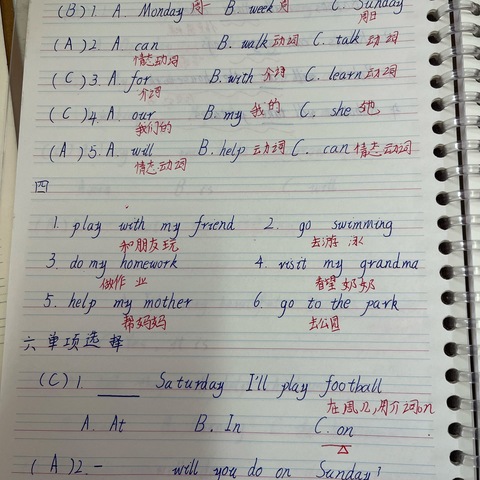 (B) 1. A. Monday 周一 B. week 周 C. Sunday 周日
(A) 2. A. can 情态动词 B. walk 动词 C. talk 动词
(C) 3. A. for 介词 B. with 介词 C. learn 动词
(C) 4. A. our 我们的 B. my 我的 C. she 她
(A) 5. A. will 情态动词 B. help 动词 C. can 情态动词
四
1. play with my friend 2. go swimming
和朋友玩 去游泳
3. do my homework 4. visit my grandma
做作业 看望奶奶
5. help my mother 6. go to the park
帮妈妈 去公园
六 单项选择
(C) 1. ____ Saturday I'll play football
在周几,用介词on
A. At B. In C. on
(A) 2. — will you do on Sunday?